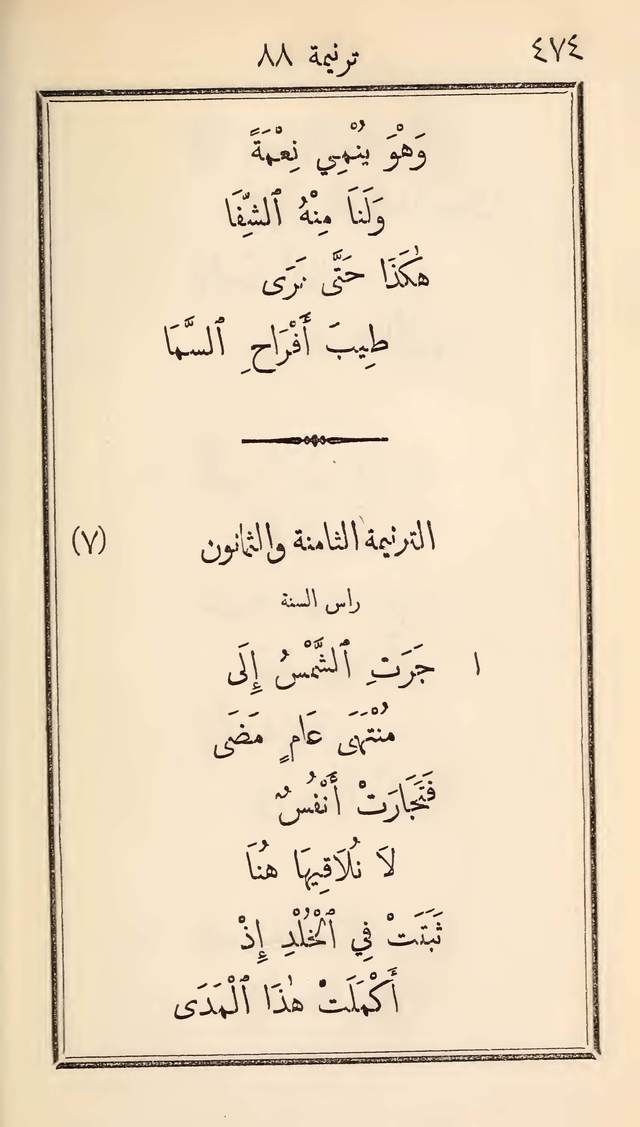 ٤٧٤
ترنيمة ٨٨
وَهْوَ يُنْمِي نِعْمَةً
وَلَنَا مِنْهُ ٱلشِّفَا
هٰكَذَا حَتَّى نَرَى
طِيبَ أَفْرَاحِ ٱلسَّمَا
الترنيمة الثامنة والثمانون (٧)
راس السنة
١ جَرَتِ ٱلشَّمْسُ إِلَى
مُنْتَهَى عَامٍ مَضَى
فَتَجَارَتْ أَنْفُسٌ
لَا نُلَاقِيهَا هُنَا
ثَبَتَتْ فِي ٱلْخُلْدِ إِذْ
أَكْمَلَتْ هٰذَا ٱلْمَدَى